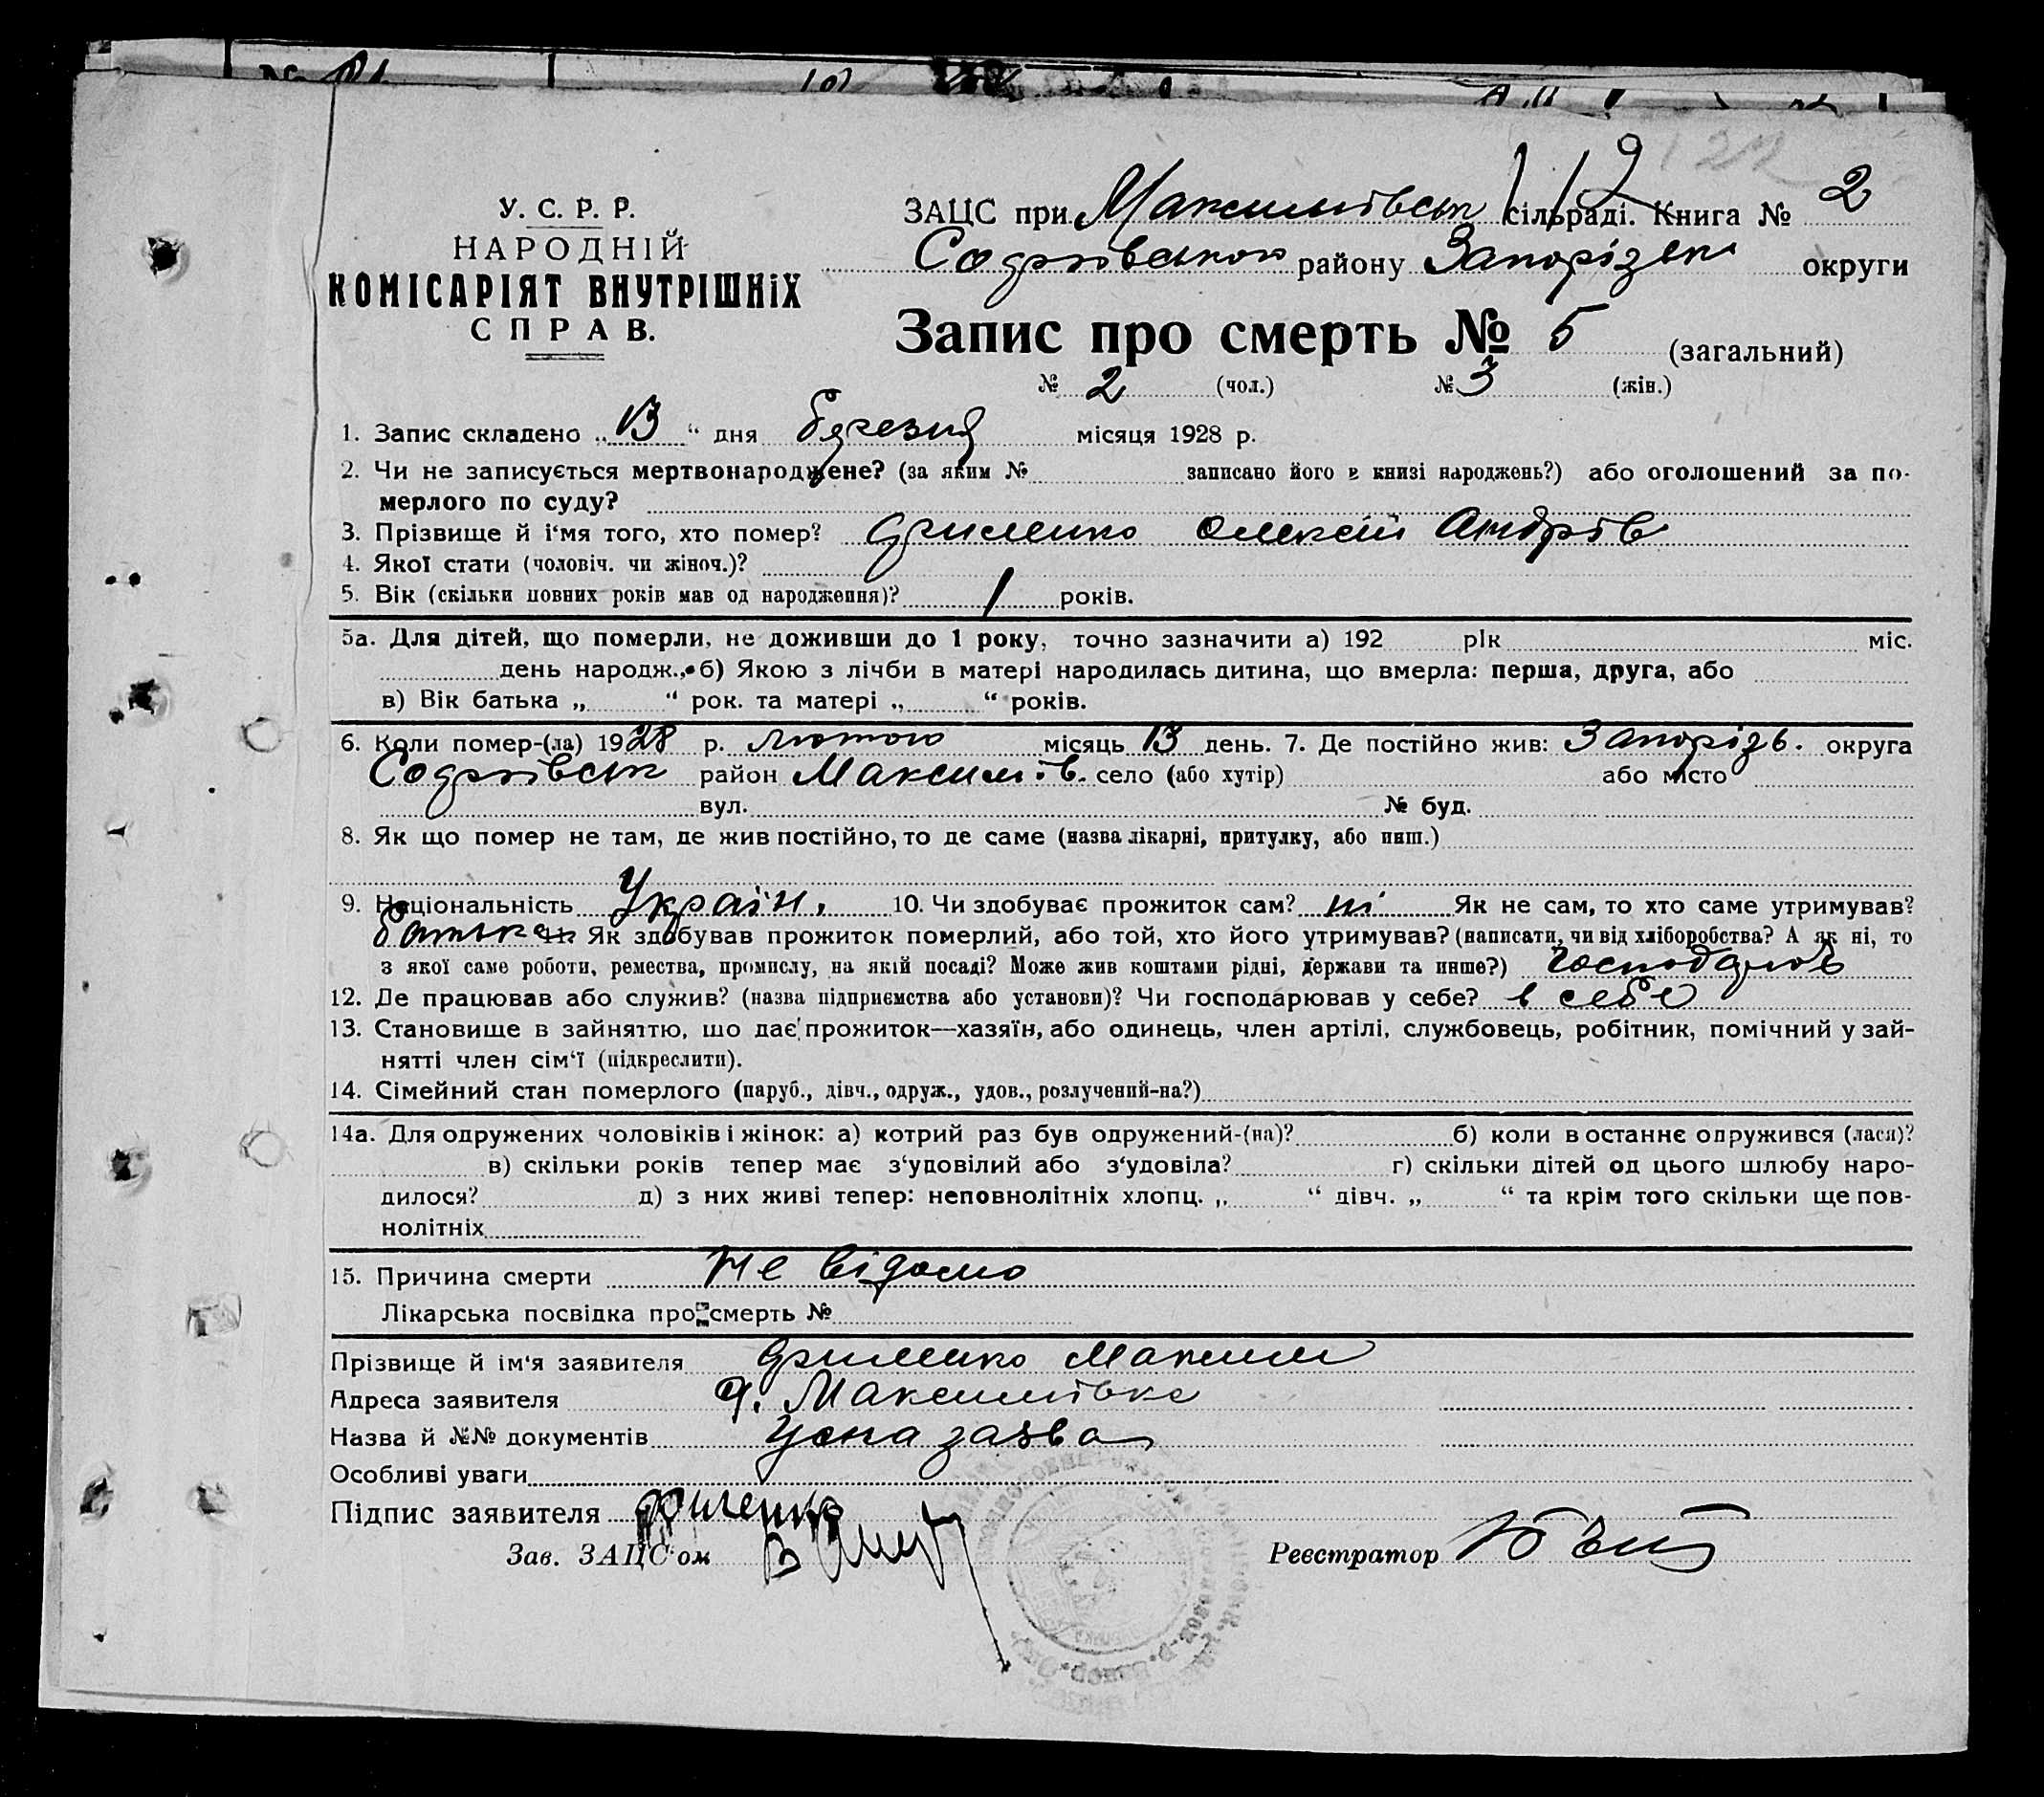 119 122
У. С. Р. Р.
НАРОДНІЙ
КОМІСАРІЯТ ВНУТРІШНІХ
СПРАВ.
ЗАЦС при Максимівськ сільраді. Книга № 2
Софіївського району Запорізьк округи
Запис про смерть № 5 (загальний)
№ 2 (чол.) № 3 (жін.)
1. Запис складено „ 13 “ дня березня місяця 1928 р.
2. Чи не записується мертвонароджене? (за яким № записано його в книзі народжень?) або оголошений за по-
мерлого по суду?
3. Прізвище й і‘мя того, хто помер? Олексій Андрів
4. Якої стати (чоловіч. чи жіноч.)?
5. Вік (скільки повних років мав од народження)? 1 років.
5а. Для дітей, що померли, не доживши до 1 року, точно зазначити а) 192 рік міс.
день народж., б) Якою з лічби в матері народилась дитина, що вмерла: перша, друга, або
в) Вік батька „ “ рок. та матері „ “ років.
6. Коли помер-(ла) 1928 р. лютого місяць 13 день. 7. Де постійно жив: Запорізь. округа
Софіївськ район Максимів. село (або хутір) або місто
вул. № буд.
8. Як що помер не там, де жив постійно, то де саме (назва лікарні, притулку, або инш.)
9. Національність Україн. 10. Чи здобуває прожиток сам? ні Як не сам, то хто саме утримував?
батько Як здобував прожиток померлий, або той, хто його утримував? (написати, чи від хліборобства? А як ні, то
з якої саме роботи, ремества, промислу, на якій посаді? Може жив коштами рідні, держави та инше?)
12. Де працював або служив? (назва підприємства або установи)? Чи господарював у себе? в себе
13. Становище в зайняттю, що дає прожиток—хазяїн, або одинець, член артілі, службовець, робітник, помічний у зай-
нятті член сім‘ї (підкреслити).
14. Сімейний стан померлого (паруб., дівч., одруж., удов., розлучений-на?)
14а. Для одружених чоловіків і жінок: а) котрий раз був одружений-(на)? б) коли в останнє одружився (лася)?
в) скільки років тепер має з‘удовілий або з‘удовіла? г) скільки дітей од цього шлюбу наро-
дилося? д) з них живі тепер: неповнолітніх хлопц. „ “ дівч. „ “ та крім того скільки ще пов-
нолітніх
15. Причина смерти Не відомо
Лікарська посвідка про смерть №
Прізвище й ім‘я заявителя Максим
Адреса заявителя Максимівка
Назва й №№ документів Усна заява
Особливі уваги
Підпис заявителя
Зав. ЗАЦС‘ом
Реєстратор